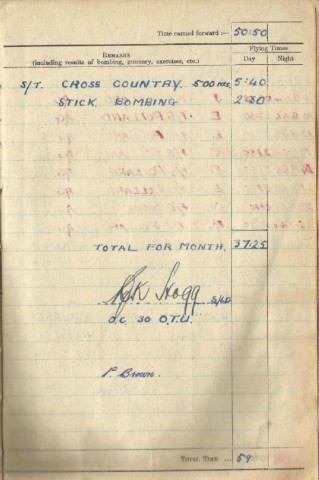 Time carried forward :— 50:50
REMARKS
(including results of bombing, gunnery, exercises, etc.)
Flying Times
Day Night
S/T. CROSS COUNTRY. 500 MLS. 5:40
STICK BOMBING 2:30
TOTAL FOR MONTH. 37:25
Hogg S/LD
O.C. 30 O.T.U.
P. Brown.
TOTAL TIME ... 59